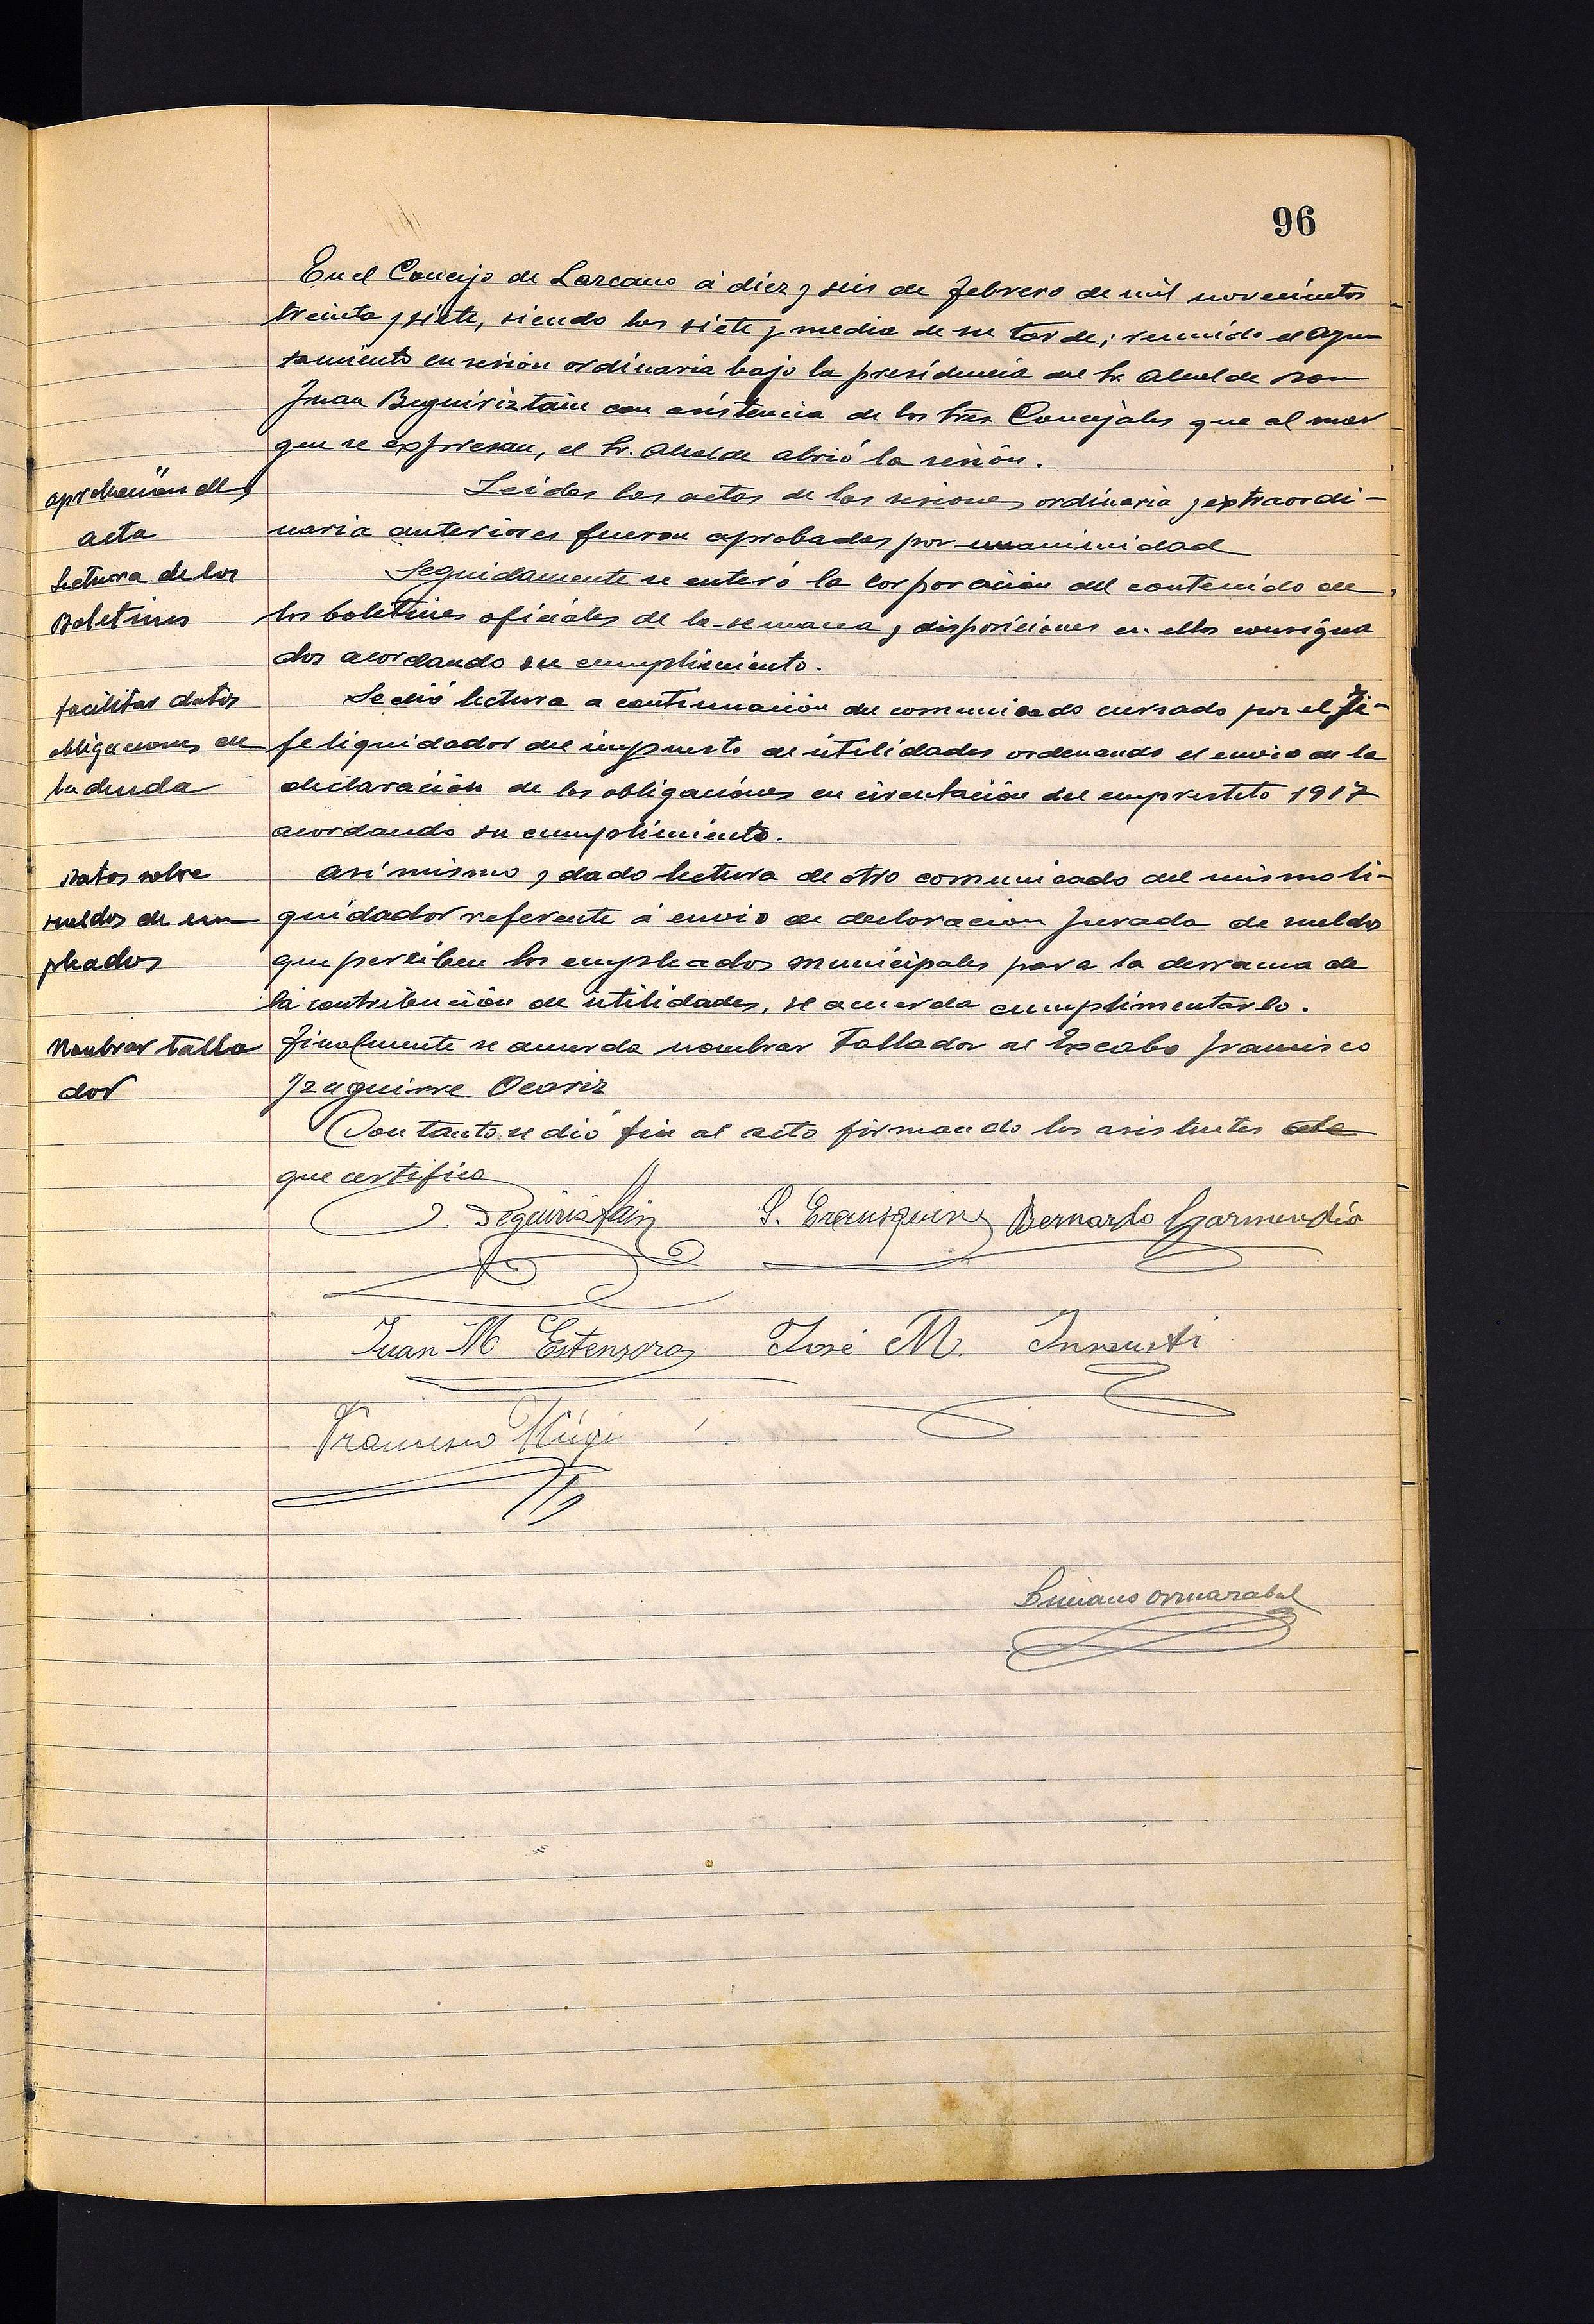 96
En el Concejo de Lazcano á diez y seis de febrero de mil novecientos
treinta y siete, siendo las siete y media de su tarde; reunido el Ayun
tamiento en sesion ordinaria bajo la presidencia del Sr. Alcalde Don
Juan Beguiriztain con asistencia de los Sres Concejales que al mar
gen se expresan, el Sr. Alcalde abrió la sesión.
aprobación del
acta
Leidas las actas de las sesiones ordinaria y extraordi-
naria anteriores fueron aprobadas por unanimidad
Lectura de los
Boletines
Seguidamente se enteró la Corporación del contenido de
los boletines oficiales de la semana y disposiciones en ellos consigna
dos acordando su cumplimiento.
facilitar datos
obligaciones en
la deuda
Se dió lectura a continuación del comunicado cursado por el Je-
fe liquidador del impuesto de utilidades ordenando el envio de la
declaración de las obligaciones en circulación del emprestito 1917
acordando su cumplimiento.
Datos sobre
sueldos de em
pleados
Asi mismo y dado lectura de otro comunicado del mismo li-
quidador referente á envio de declaracion Jurada de sueldos
que perciben los empleados municipales para la derrama de
la contribución de utilidades, se acuerda cumplimentarlo.
Nombrar talla
dor
Finalmente se acuerda nombrar Tallador al Excabo Francisco
Yzaguirre Ocariz
Con tanto se dió fin al acto firmando los asistentes de
que certifico
J. Beguiristain
S. Erausquin
Bernardo Garmendia
Juan M Estensoro
José M. Insausti
Francisco Múgi
Luciano Ormazabal